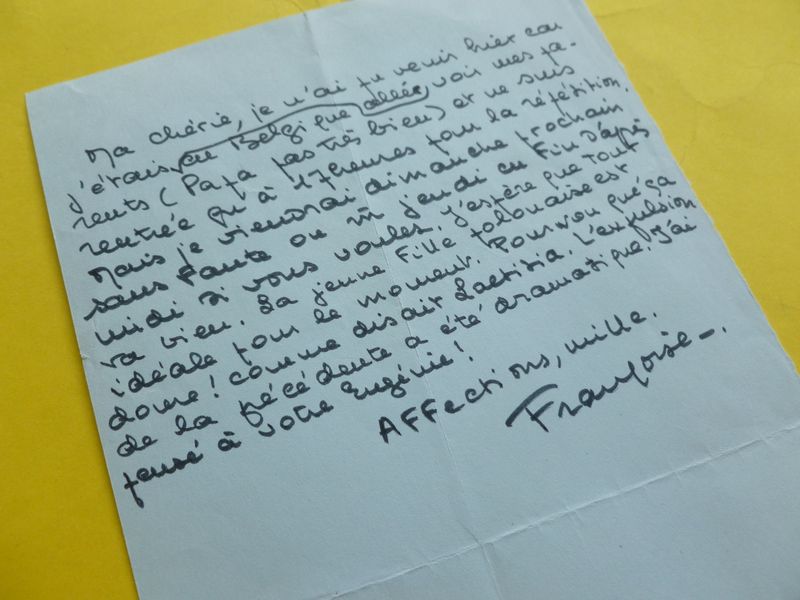 Ma chérie, je n'ai pu venir hier car
j'étais, en Belgique allée, voir mes pa-
rents (Papa pas très bien) et ne suis
rentrée qu'à 17 heures pour la répétition.
Mais je viendrai dimanche prochain
sans faute ou jeudi en fin d'après
midi si vous voulez. J'espère que tout
va bien. La jeune fille polonaise est
idéale pour le moment. Pourvou que ça
doure! comme disait Laetitia. L'expulsion
de la précédente a été dramatique. J'ai
pensé à votre Eugénie!
Affections, mille.
Françoise_.